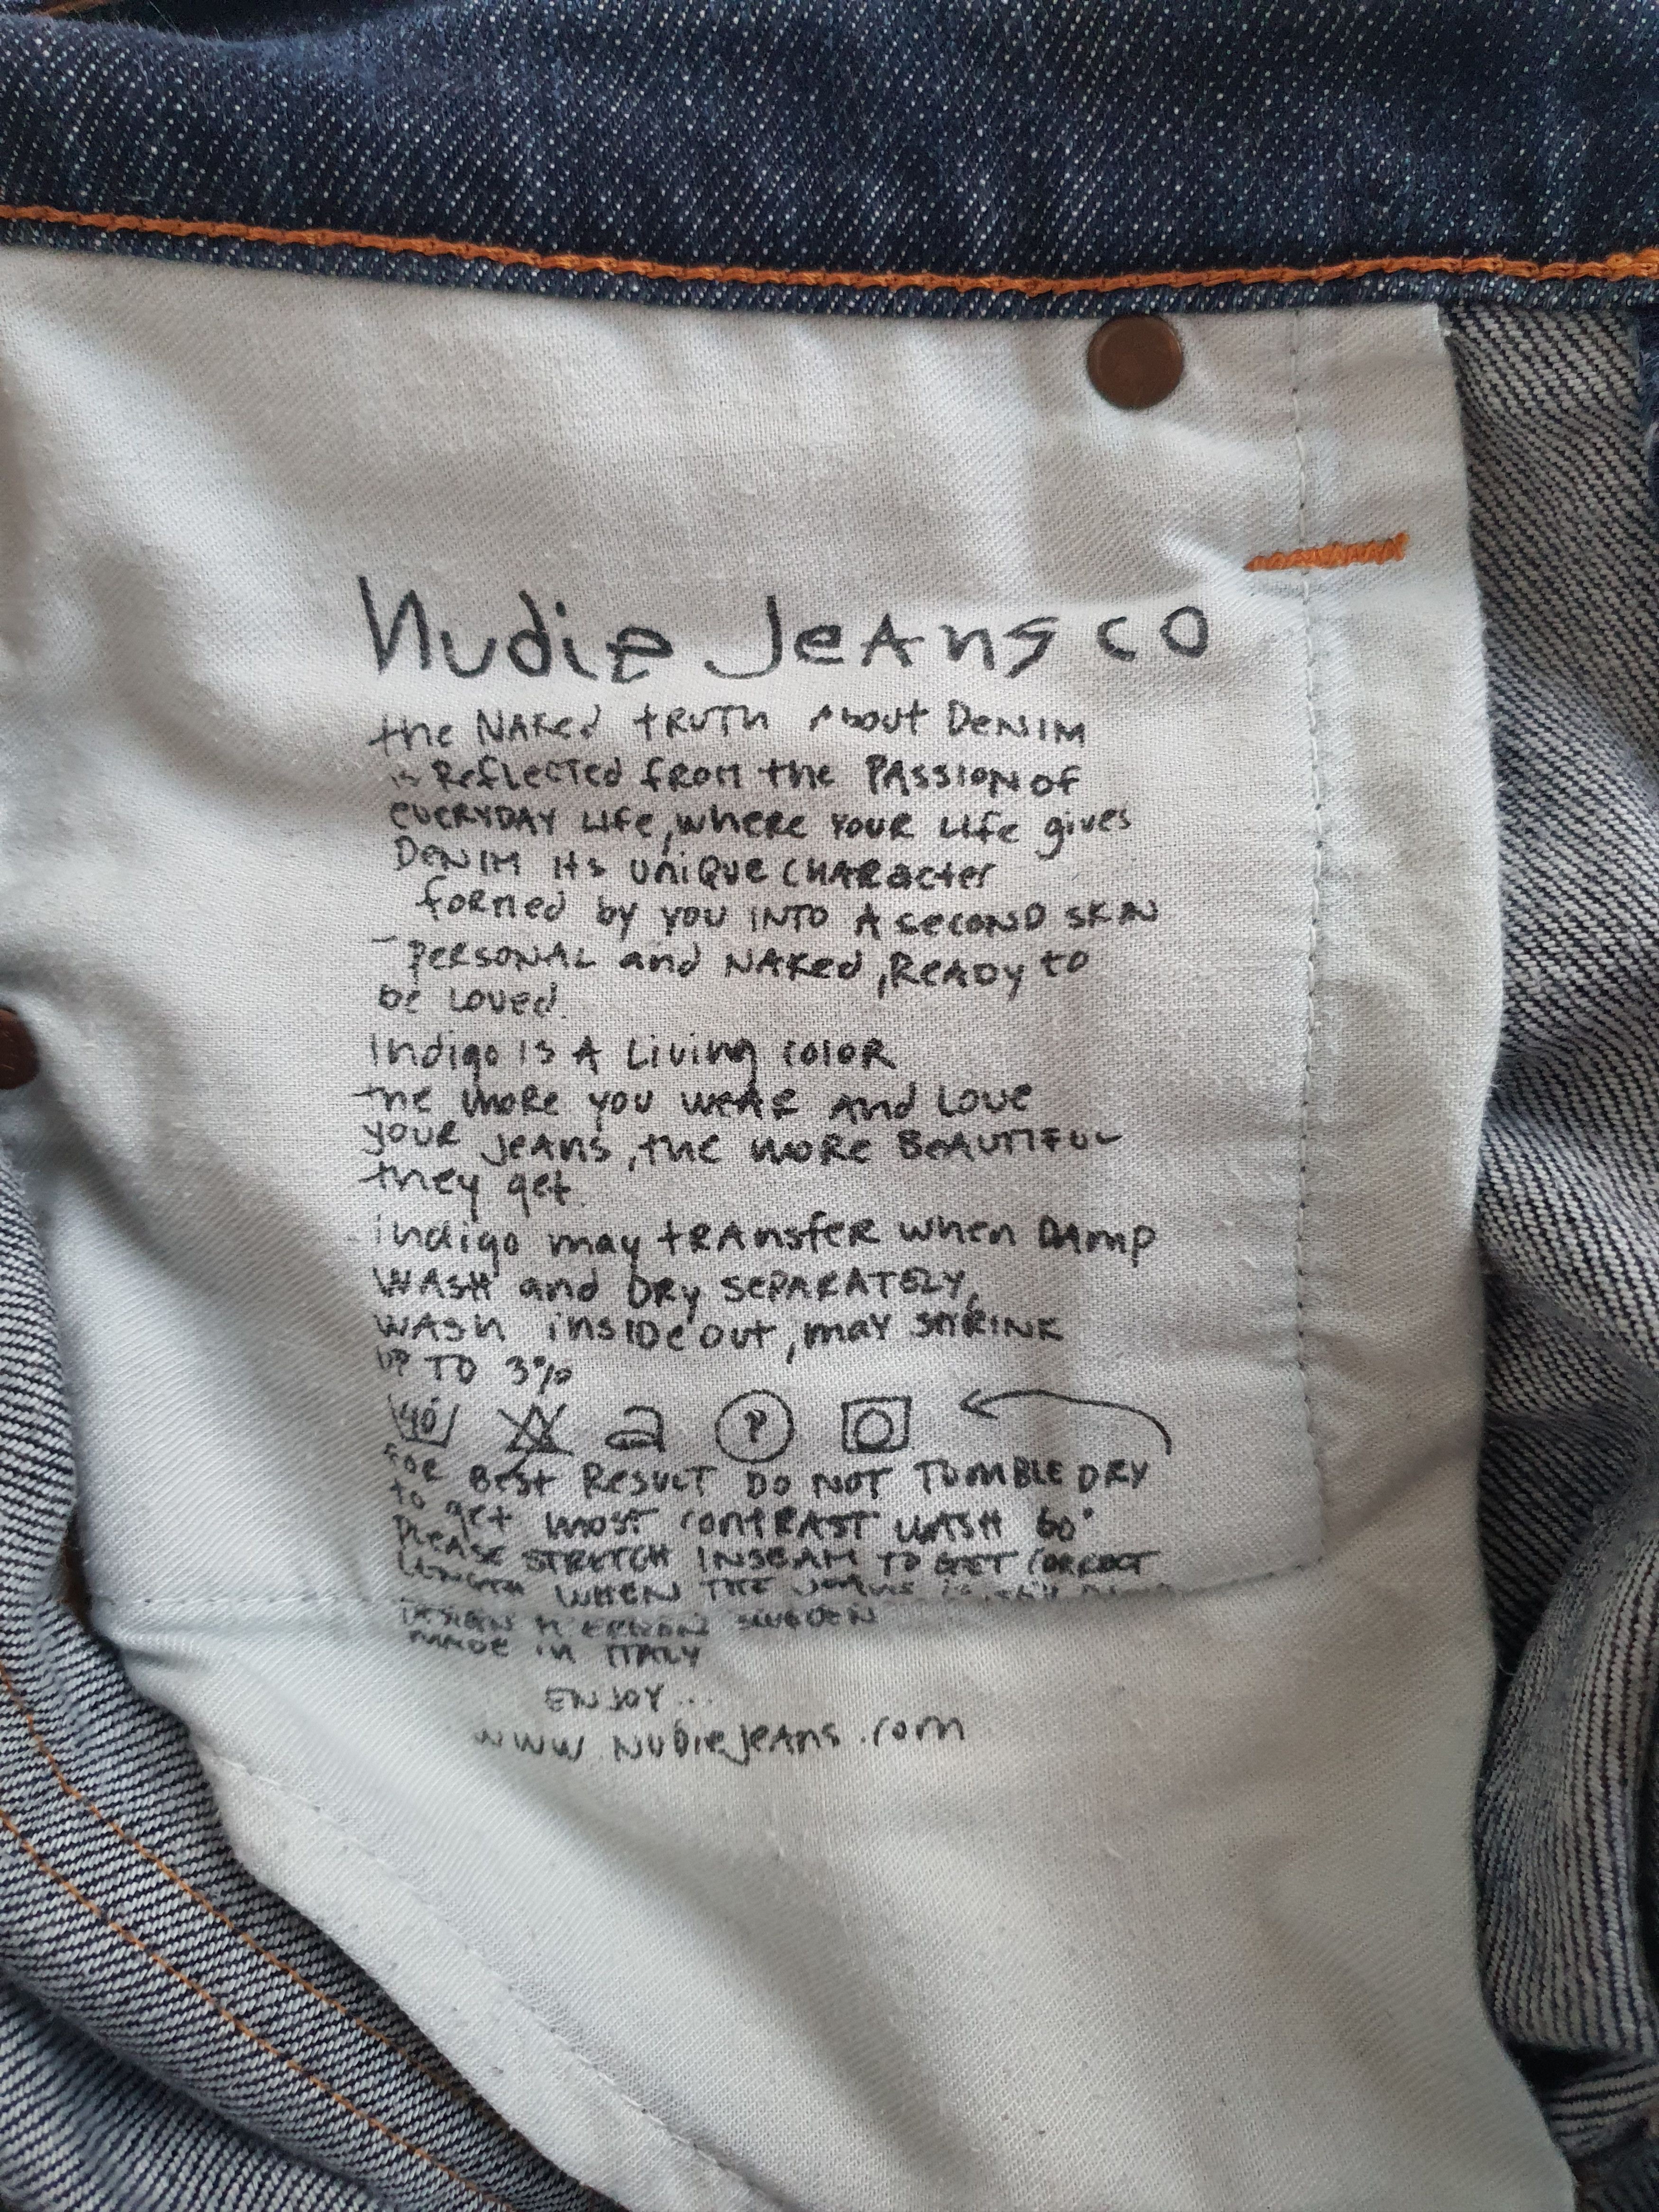 Nudie Jeans co
the NAKed tRUTh About DeNIM
is ReflecTed from the PASSION of
eveRYDAY Life, wheRe YOUR Life gives
DeNIM its uniQue CHARacter
formed by you INTO A secOND SKIN
- PeRSONAL and NAKed, ReADy to
be Loved.
Indigo IS A Living coloR
the moRe you weAR And Love
youR jeAns, the moRe BeAUTIFUL
they get.
indigo may tRAnsfeR when DAmp
WASH and DRy SePARATELY,
WASh insIDe out, may SHRINK
UP TO 3%
40° P
foR Best ResuLT DO NOT TUMBLE DRY
to get most contRAST WASH 60°
PLeASe STRETCH INSEAM TO GET CORRECT
LENGTH WHEN THE JEANS is still
DESIGN M ERIXON SWEDEN
MADE in ITALY
ENJOY...
www.NuDiejeAns.com